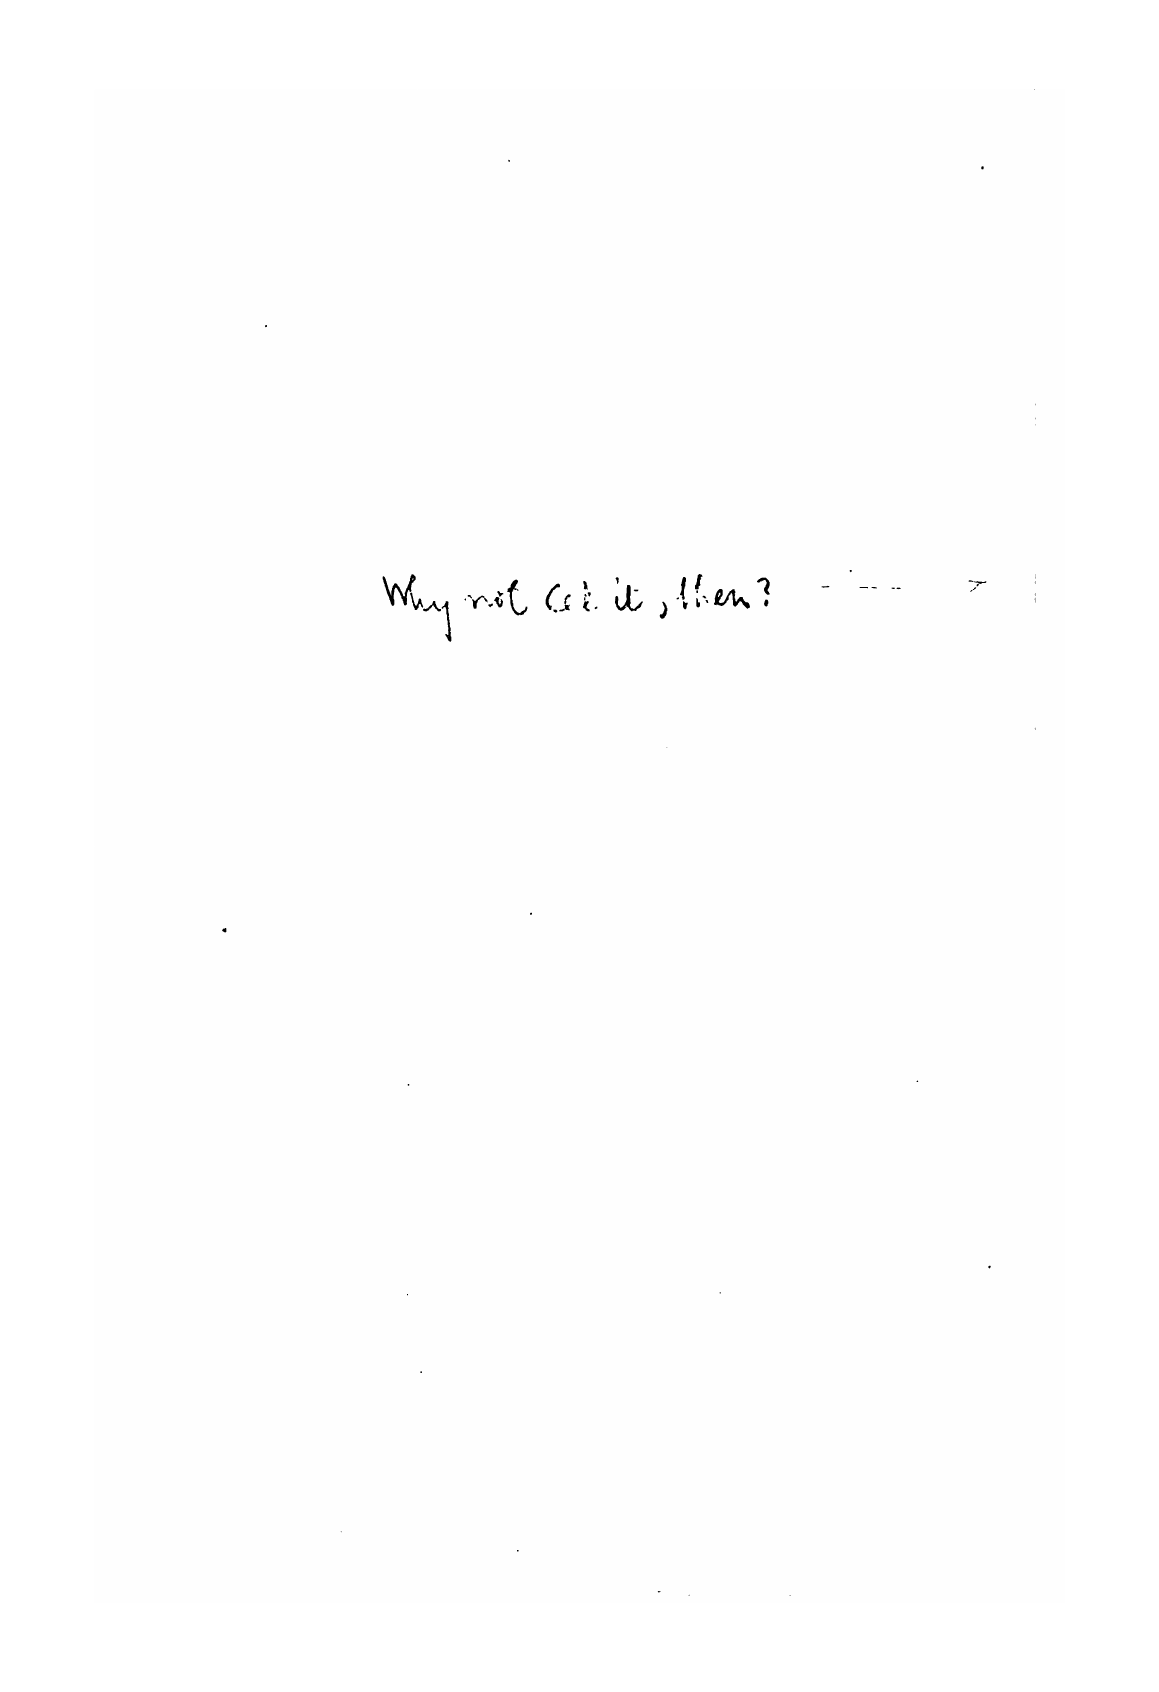 Why not it, then?